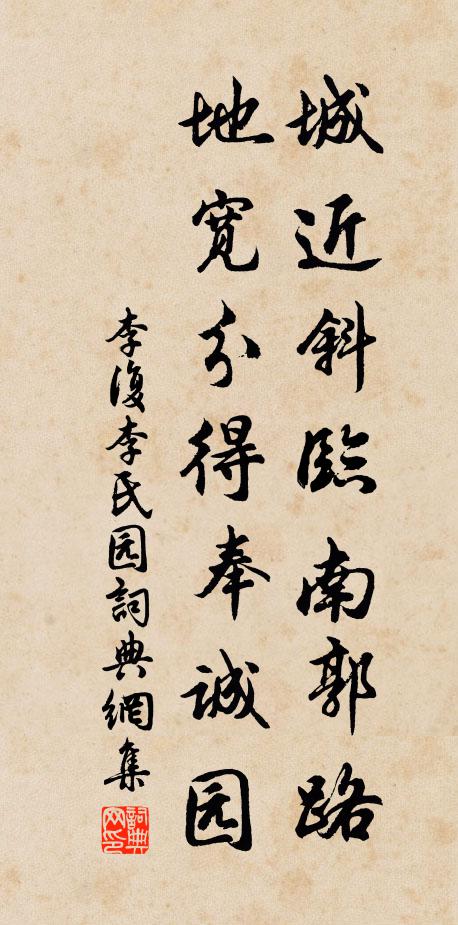 城近斜臨南郭路
地寬分得奉誠园
李復李氏园詞典網集
詞典网印